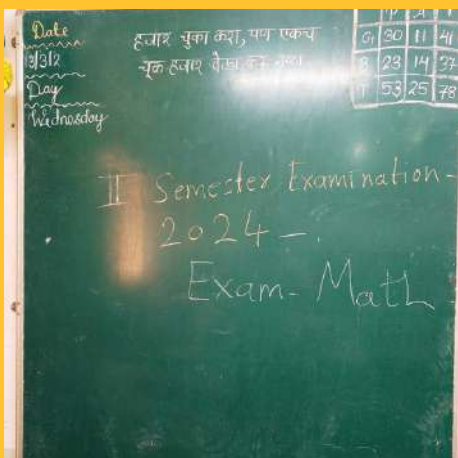 Date
Day
Wednesday
हजार चुका करा, पण एकच
चूक हजार वेळा करू नका
P A T
G 30 11 41
B 23 14 37
T 53 25 78
II Semester Examination -
2024 -.
Exam - Math